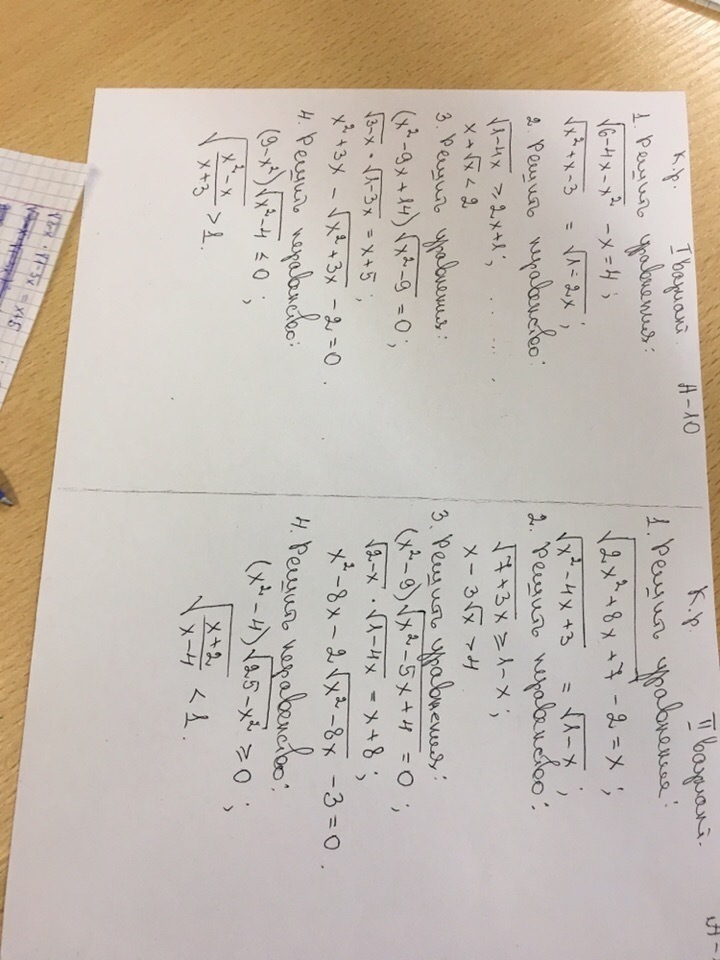 К.р. I вариант. А-10
1. Решить уравнения:
√(6-4x-x²) - x = 4;
√(x²+x-3) = √(1-2x);
2. Решить неравенство:
√(1-4x) ≥ 2x+1;
x+√x < 2
3. Решить уравнения:
(x²-9x+14)√(x²-9) = 0;
√(3-x) · √(1-3x) = x+5;
x²+3x - √(x²+3x) - 2 = 0.
4. Решить неравенство:
(9-x²)√(x²-4) ≤ 0;
√((x²-x)/(x+3)) > 1.
К.р. II вариант.
1. Решить уравнения:
√(2x²+8x+7) - 2 = x;
√(x²-4x+3) = √(1-x);
2. Решить неравенство:
√(7+3x) ≥ 1-x;
x-3√x > 4
3. Решить уравнения:
(x²-9)√(x²-5x+4) = 0;
√(2-x) · √(1-4x) = x+8;
x²-8x-2√(x²-8x) - 3 = 0.
4. Решить неравенство:
(x²-4)√(25-x²) ≥ 0;
√((x+2)/(x-4)) < 1.
√(1-3x) = x+5